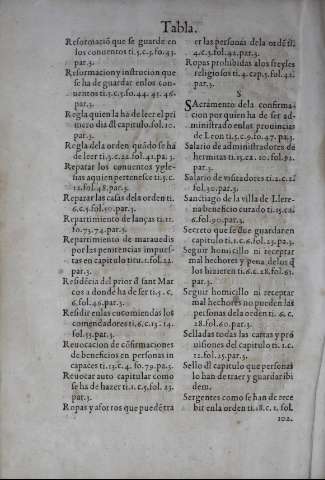 Tabla.
Reformació que se guarde en
los conuentos ti.5.c.5.fo.43.
par.3.
Reformacion y instrucion que
se ha de guardar en los con-
uentos ti.5.c.5.fo.44.45.46
par.3.
Regla quien la ha de leer el pri
mero dia đl capitulo.fol.10.
par.3.
Regla dela orden quãdo se há
de leer ti.5.c.22.fol.41.pa.3.
Reparar los conuentos y gle-
sias a quien pertenesce ti.5.c.
12.fol.48.par.3.
Reparar las casas dela orden ti.
6.c.5.fol.50.par.3.
Repartimiento de lanças ti.11.
fo.73.74.par.3.
Repartimiento de marauedis
por las penitencias impues-
tas en capitulo titu.1.fol.22.
par.3.
Residécia del prior đ sant Mar
cos a donde ha de ser ti.5.c.
6.fol.46.par.3.
Residir en las encomiendas los
comendadores ti.6.c.13.14.
fol.55.par.3.
Reuocacion de cõfirmaciones
de beneficios en personas in
capaces ti.13.c.4.fo.79.pa.3.
Reuocar auto capitular como
se ha de hazer ti.1.c.5.fol.23.
par.3.
Ropas y aforros que puedé tra
er las personas dela ordé ti.
4.c.3.fol.42.par.3.
Ropas prohibidas a los freyles
religiosos ti.4.cap.5.fol.42.
par.3.
S
SAcramento dela confirma-
cion por quien ha de ser ad-
ministrado en los prouincias
de Leon ti.5.c.9.fo.47.pa.3.
Salario de administradores de
hermitas ti.15.ca.10.fol.92.
par.3.
Salario de visitadores ti.2.c.1.
fol.30.par.3.
Sanctiago de la villa de Llere-
na beneficio curado ti.15.ca.
6.fol.90.par.3.
Secreto que se deue guardar en
capitulo ti.1.c.6.fol.23.pa.3.
Seguir homicillo ni receptar
mal hechores y pena delos q̃
los hizieren ti.6.c.28.fol.61.
par.3.
Seguir homicillo ni receptar
mal hechores no pueden las
personas dela orden ti.6.c.
28.fol.60.par.3.
Selladas todas las cartas y pro
uisiones del capitulo ti.1.c.
12.fol.25.par.3.
Sello đl capitulo que personas
lo han de traer y guardar ibi
dem.
Sergentes como se han de rece
bir en la orden ti.18.c.1.fol.
102.